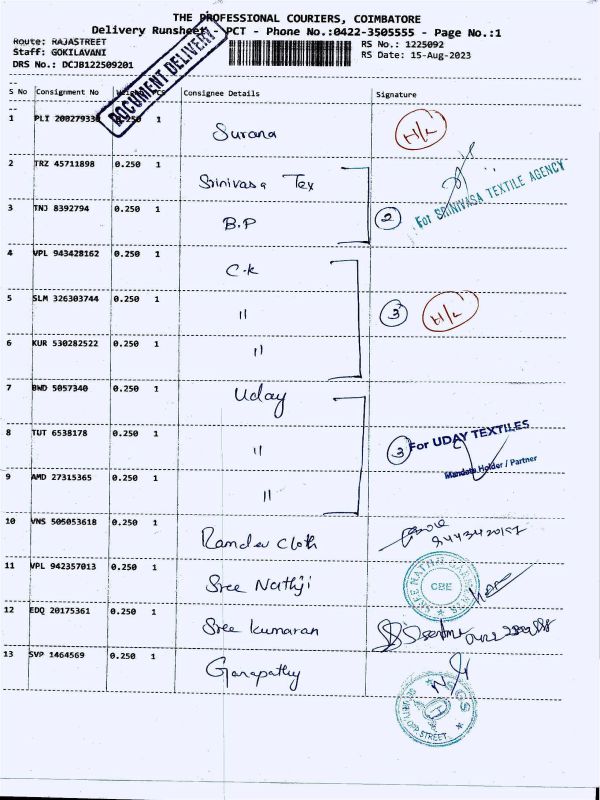 THE PROFESSIONAL COURIERS, COIMBATORE
Delivery Runsheet - PCT - Phone No.:0422-3505555 - Page No.:1
Route: RAJASTREET RS No.: 1225092
Staff: GOKILAVANI RS Date: 15-Aug-2023
DRS No.: DCJB122509201
DOCUMENT DELIVERY
S No Consignment No Weight PCS Consignee Details Signature
1 PLI 200279338 0.250 1 Surana H/L
2 TRZ 45711898 0.250 1 Srinivasa Tex
For SRINIVASA TEXTILE AGENCY
3 TNJ 8392794 0.250 1 B.P 2
4 VPL 943428162 0.250 1 C.K
5 SLM 326303744 0.250 1 " 3 H/L
6 KUR 530282522 0.250 1 "
7 BWD 5057340 0.250 1 Uday
8 TUT 6538178 0.250 1 " 3 For UDAY TEXTILES
Mandate Holder / Partner
9 AMD 27315365 0.250 1 "
10 VNS 505053618 0.250 1 Ramdev Cloth
11 VPL 942357013 0.250 1 Sree Nathji CBE
12 EDQ 20175361 0.250 1 Sree Kumaran
13 SVP 1464569 0.250 1 Ganapathy